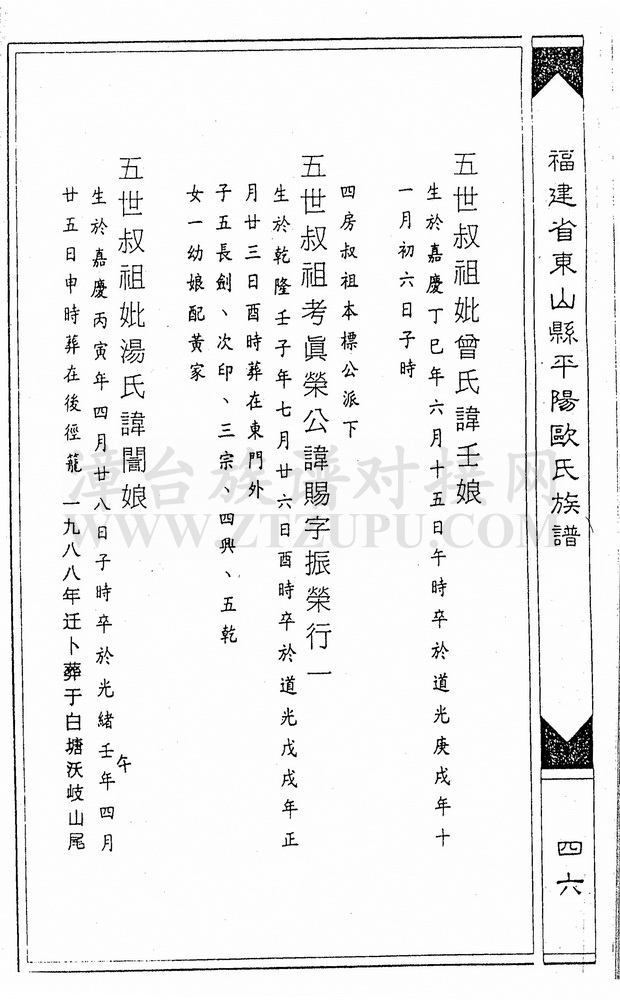 福建省東山縣平陽歐氏族譜
四六
五世叔祖妣曾氏諱壬娘
生於嘉慶丁巳年六月十五日午時卒於道光庚戌年十
一月初六日子時
四房叔祖本標公派下
五世叔祖考眞榮公諱賜字振榮行一
生於乾隆壬子年七月廿六日酉時卒於道光戊戌年正
月廿三日酉時葬在東門外
子五長劍、次印、三宗、四興、五乾
女一幼娘配黃家
五世叔祖妣湯氏諱誾娘
生於嘉慶丙寅年四月廿八日子時卒於光緒壬午年四月
廿五日申時葬在後徑籠 一九八八年迁卜葬于白塘沃岐山尾
漳台族谱对接网
WWW.ZTZUPU.COM